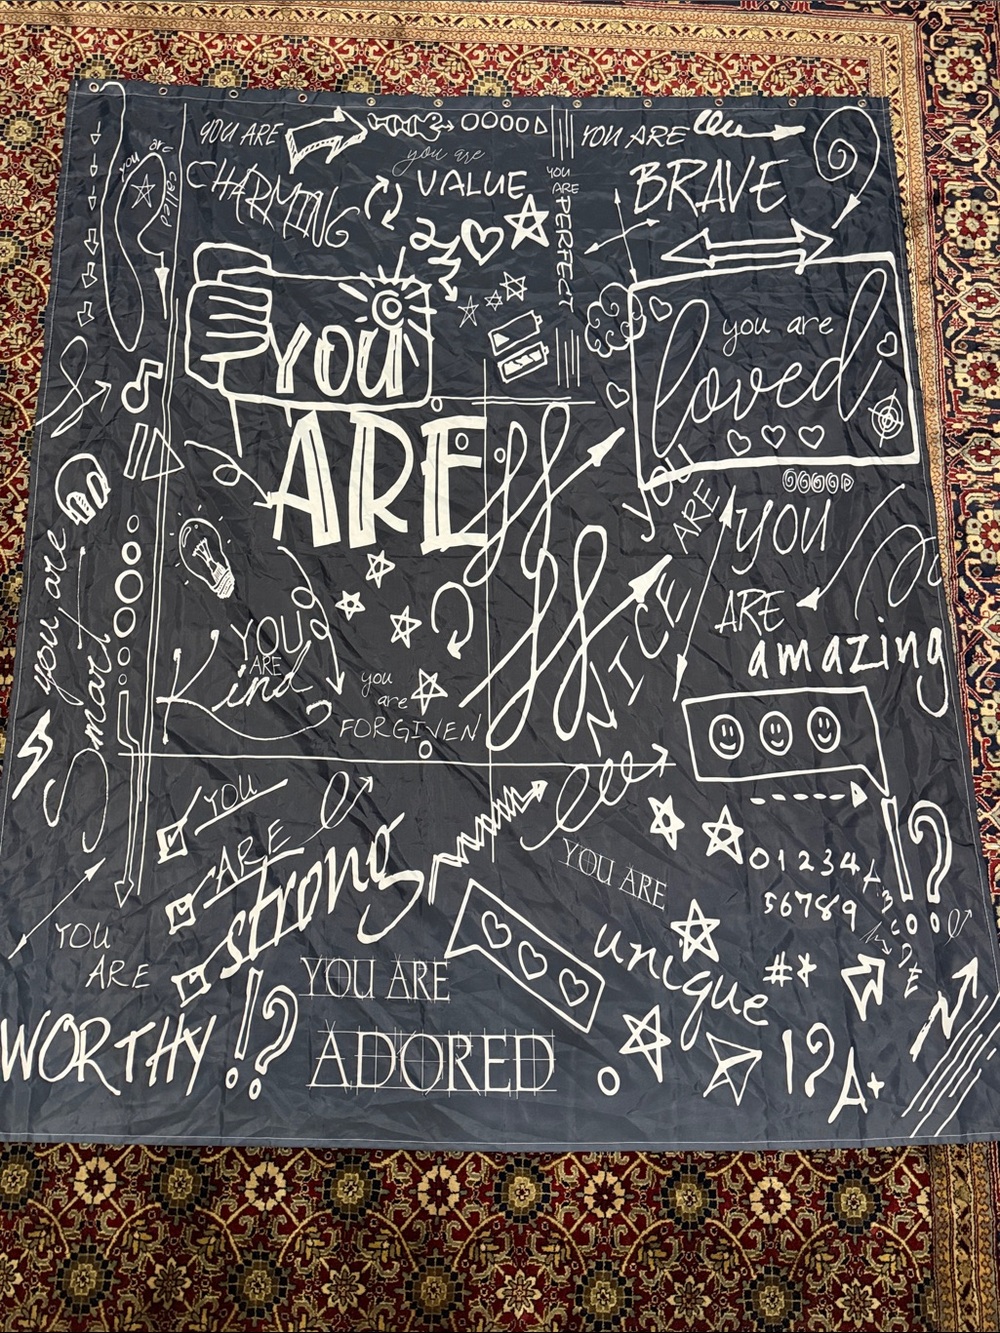 YOU ARE
CHARMING
you are
VALUE
YOU
ARE
PERFECT
YOU ARE
BRAVE
you are
called
YOU
ARE
you are
loved
YOU
ARE
NICE
YOU
ARE
amazing
you are
Smart
YOU
ARE
Kind
you
are
FORGIVEN
YOU
ARE
strong
YOU ARE
unique
0 1 2 3 4
5 6 7 8 9
!?
#*
YOU
ARE
WORTHY
!?
YOU ARE
ADORED
!?
A+